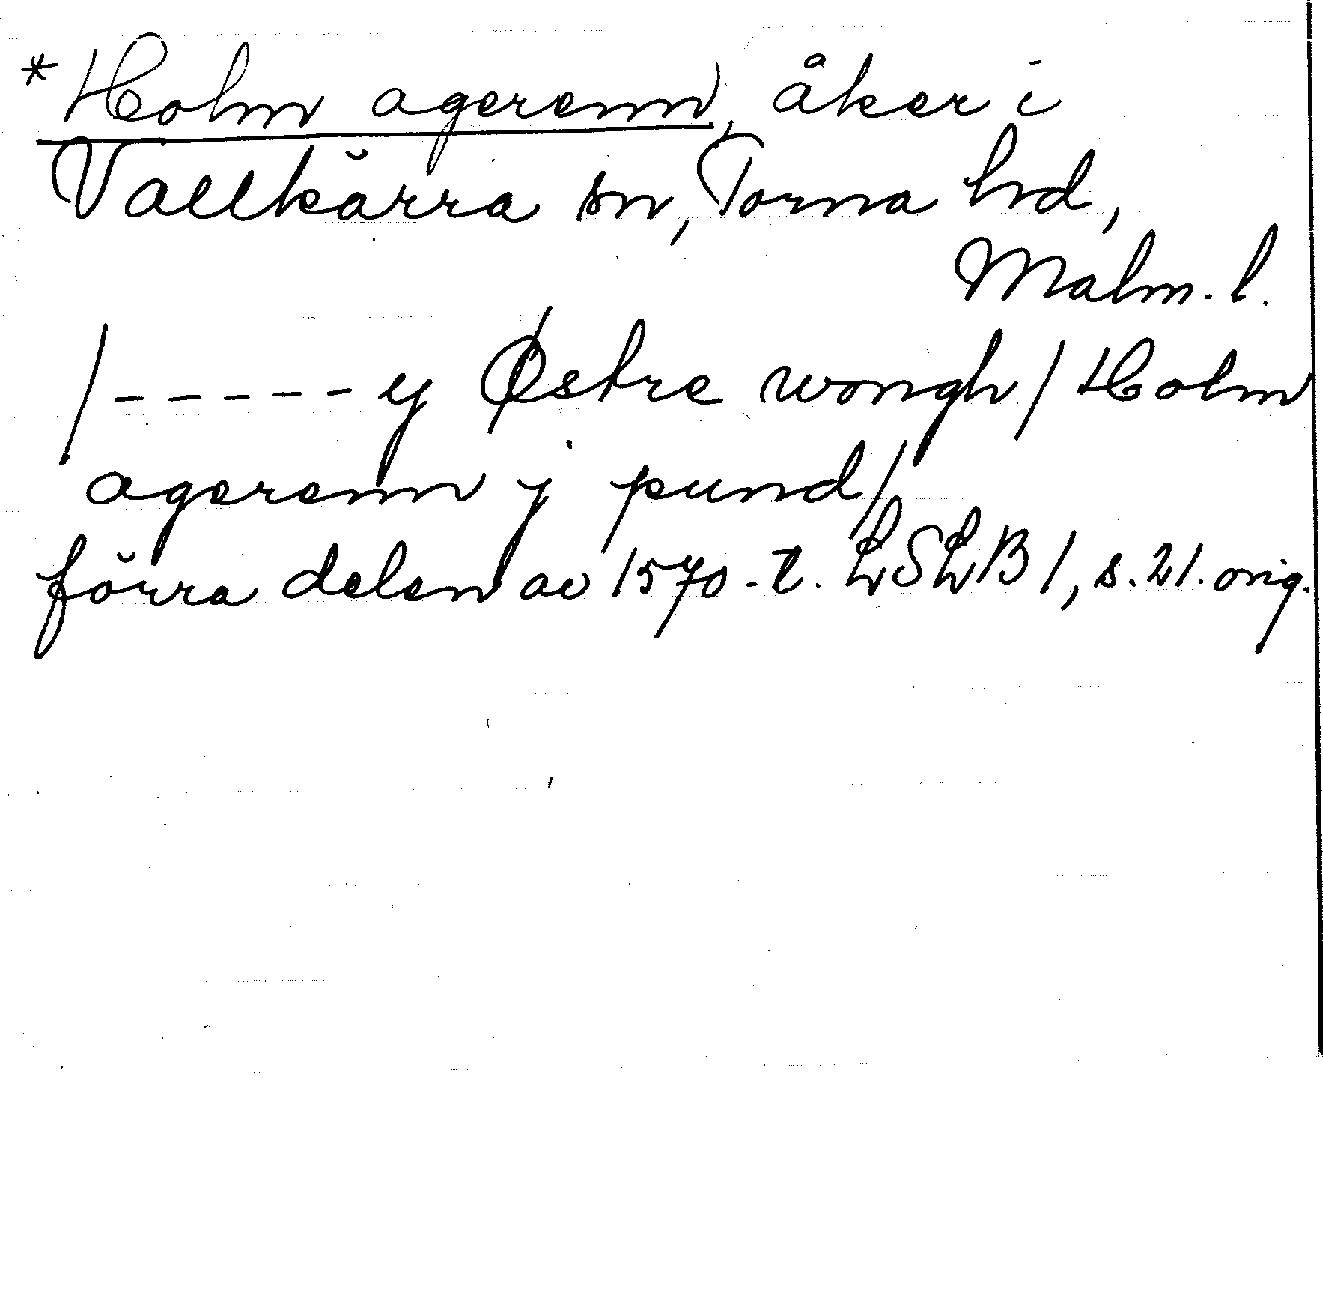 *Holm agerenn, åker i
Vallkärra sn, Torna hd,
Malm. l.
/----- y Østre wongh / Holm
agerenn j pund/
förra delen av 1570-t. LSLB 1, s. 21. orig.